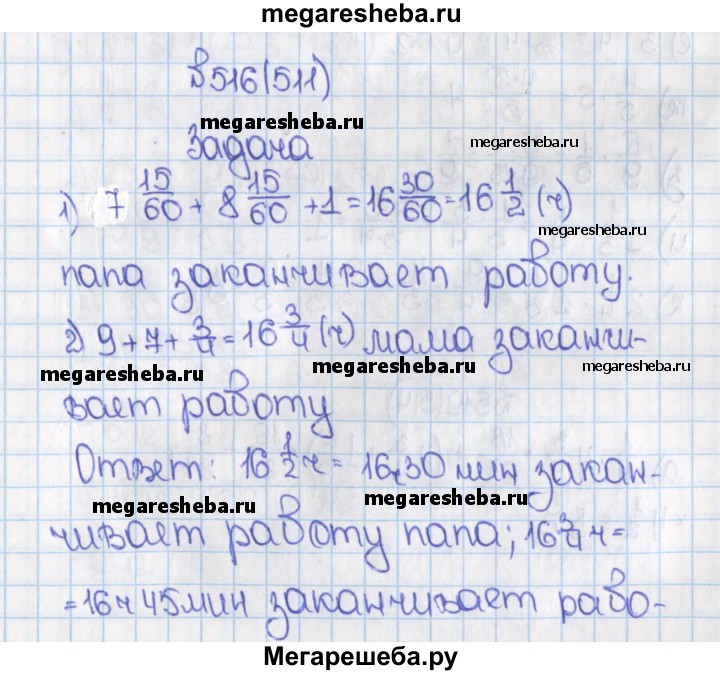 megaresheba.ru
в 516(511)
megaresheba.ru
megaresheba.ru
Задача
1) 7 15/60 + 8 15/60 + 1 = 16 30/60 = 16 1/2 (ч)
megaresheba.ru
папа заканчивает работу.
2) 9 + 7 + 3/4 = 16 3/4 (ч) мама заканчи-
megaresheba.ru
megaresheba.ru
megaresheba.ru
вает работу
Ответ: 16 1/2 ч = 16ч30 мин закан-
megaresheba.ru
megaresheba.ru
чивает работу папа; 16 3/4 ч =
= 16ч 45мин заканчивает рабо-
Мегарешеба.ру